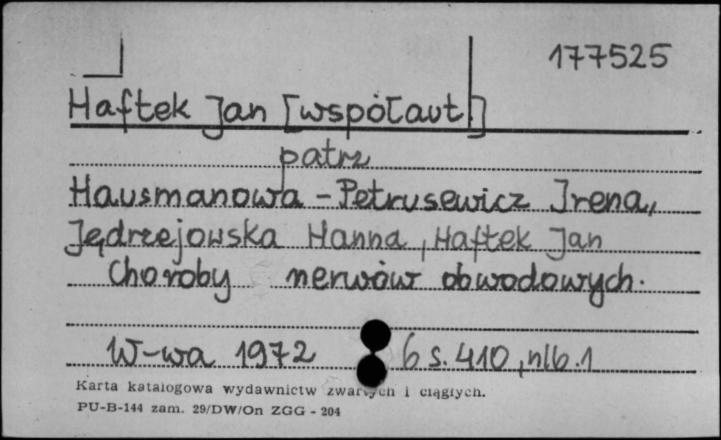 177525
Haftek Jan [współaut.]
patrz
Hausmanowa - Petrusewicz Irena,
Jędrzejowska Hanna, Haftek Jan
Choroby nerwów obwodowych.
W-wa 1972 6 s. 410, nlb. 1
Karta katalogowa wydawnictw zwartych i ciągłych.
PU-B-144 zam. 29/DW/On ZGG - 204